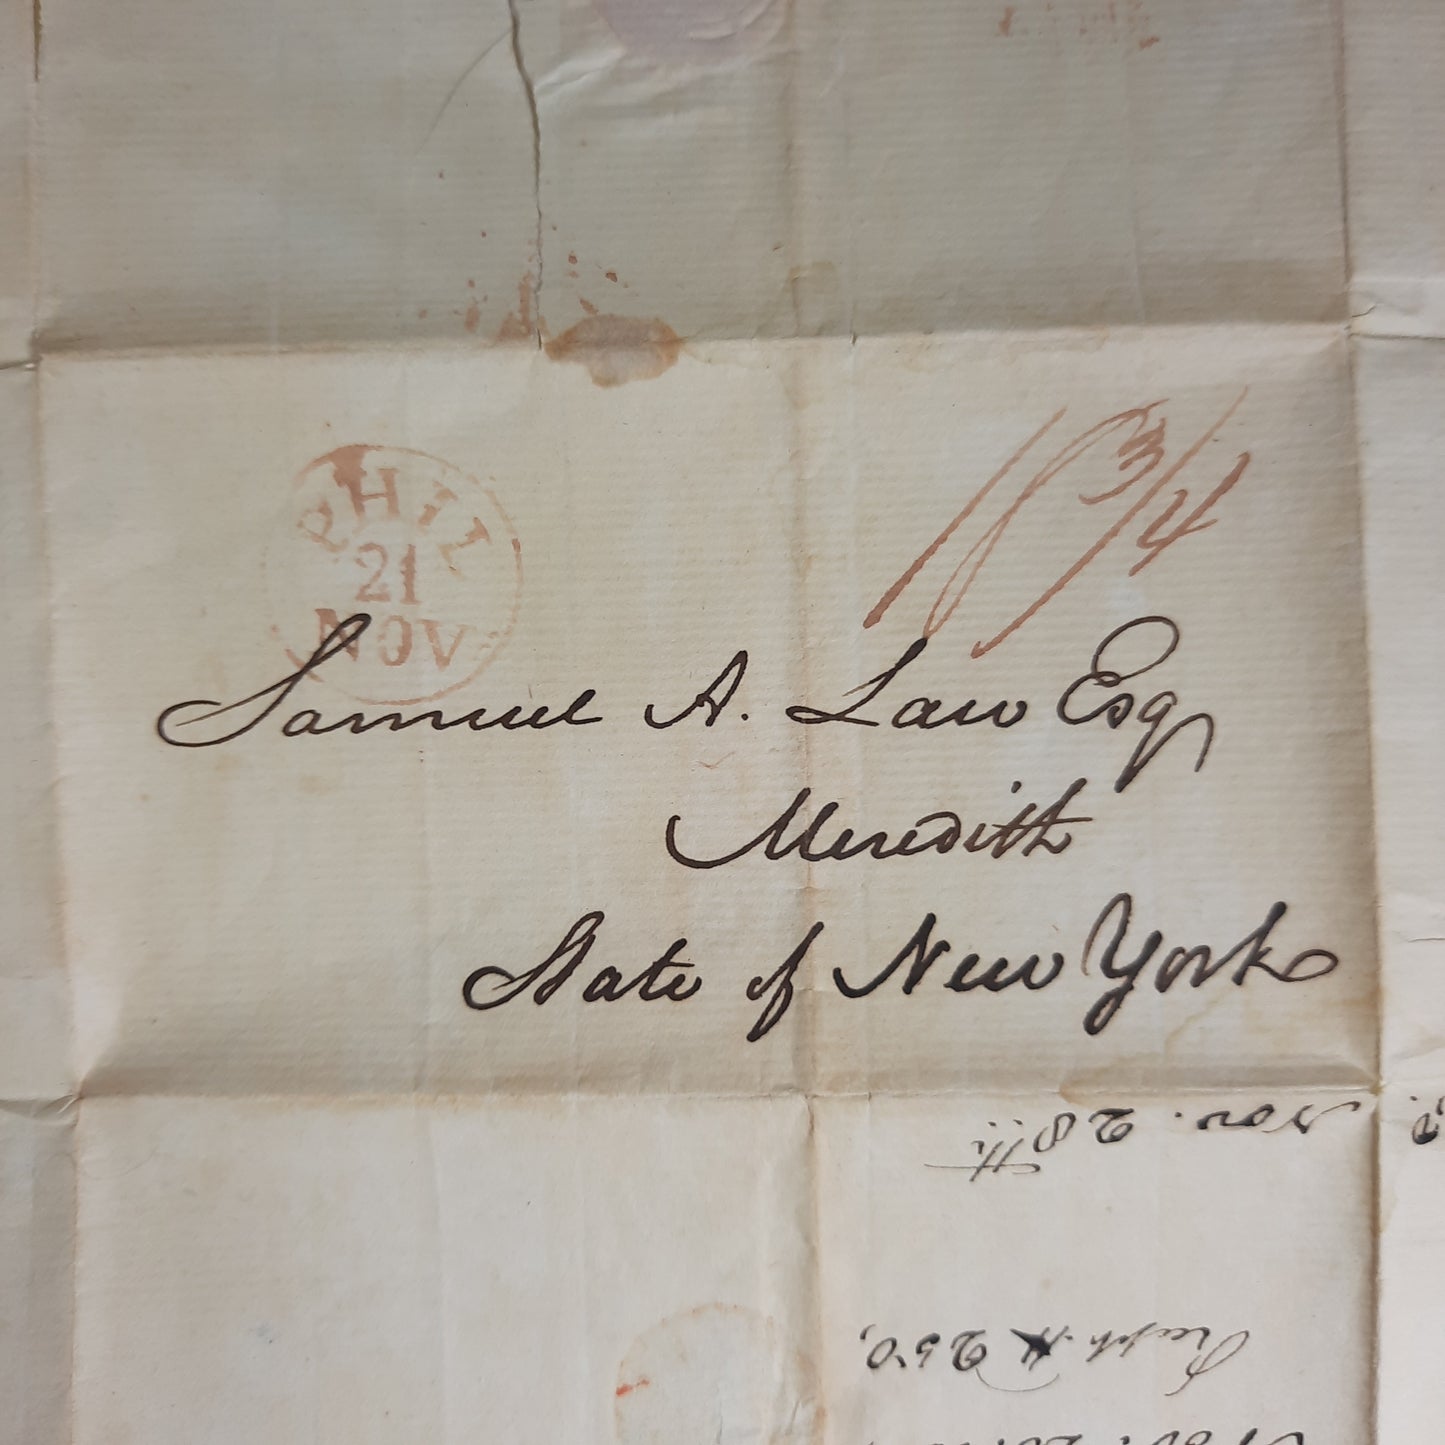 PHIL
21
NOV
18 3/4
Samuel A. Law Esq
Meredith
State of New York
Nov. 28th
250,